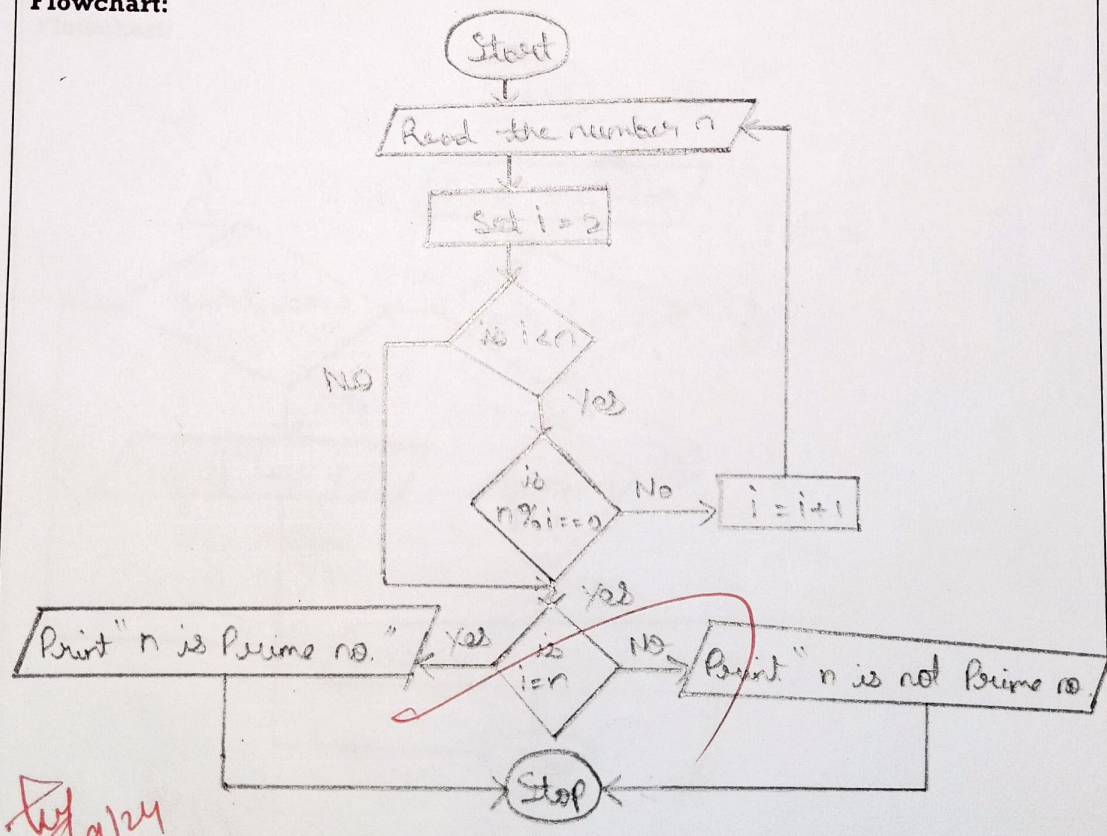 Flowchart:
Start
Read the number n
Set i = 2
is i<n
NO
Yes
is
n%i==0
No
i = i+1
Yes
is
i=n
Yes
Print "n is Prime no."
No
Print "n is not Prime no.
Stop
/24